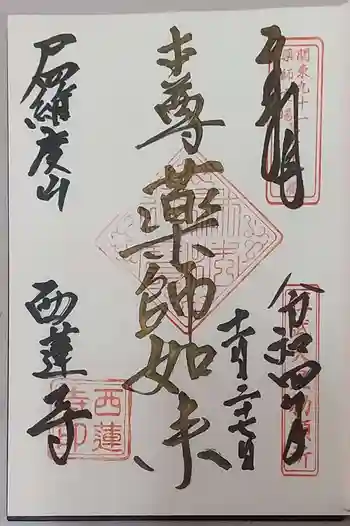 奉拝
關東九十一
薬師霊場
令和四年
十一月二十七日
本尊
薬師如来
尸羅度山
西蓮寺
西蓮
寺印